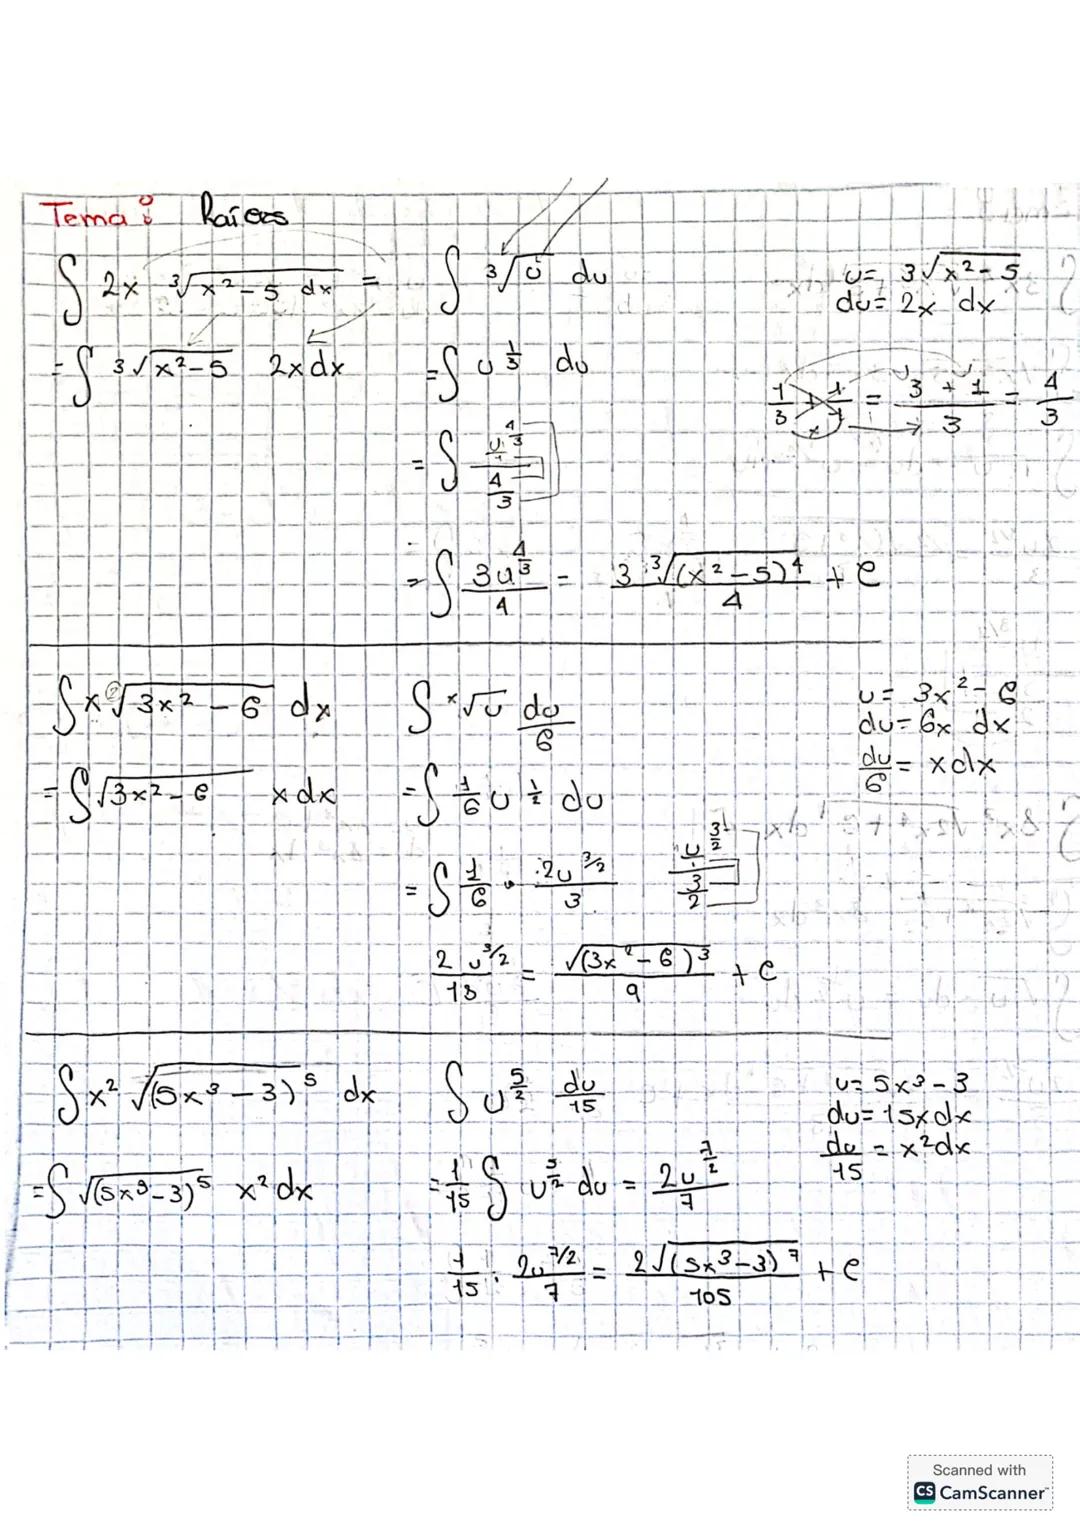 Tema: Raíces
∫ 2x ³√(x²-5) dx = ∫ ³√u du
u= 3√(x²-5)
du= 2x dx
=∫ 3√(x²-5) 2xdx =∫ u^(1/3) du
1/3 + 1/1 = (3+1)/3 = 4/3
=∫ (u^(4/3)/1)/(4/3)
=∫ 3u^(4/3)/4 = 3 ³√((x²-5)⁴)/4 + C
∫ x ²√(3x²-6) dx ∫ x√u du/6
u= 3x²-6
du= 6x dx
du/6 = xdx
=∫ √(3x²-6) xdx =∫ 1/6 u^(1/2) du
=∫ 1/6 · 2u^(3/2)/3 (u^(3/2)/1)/(3/2)
2u^(3/2)/18 = √((3x²-6)³)/9 + C
∫ x² √((5x³-3)⁵) dx ∫ u^(5/2) du/15
u= 5x³-3
du= 15xdx
du/15 = x²dx
=∫ √((5x³-3)⁵) x²dx =1/15 ∫ u^(5/2) du = 2u^(7/2)/7
1/15 · 2u^(7/2)/7 = 2√((5x³-3)⁷)/105 + C
Scanned with
CS CamScanner™